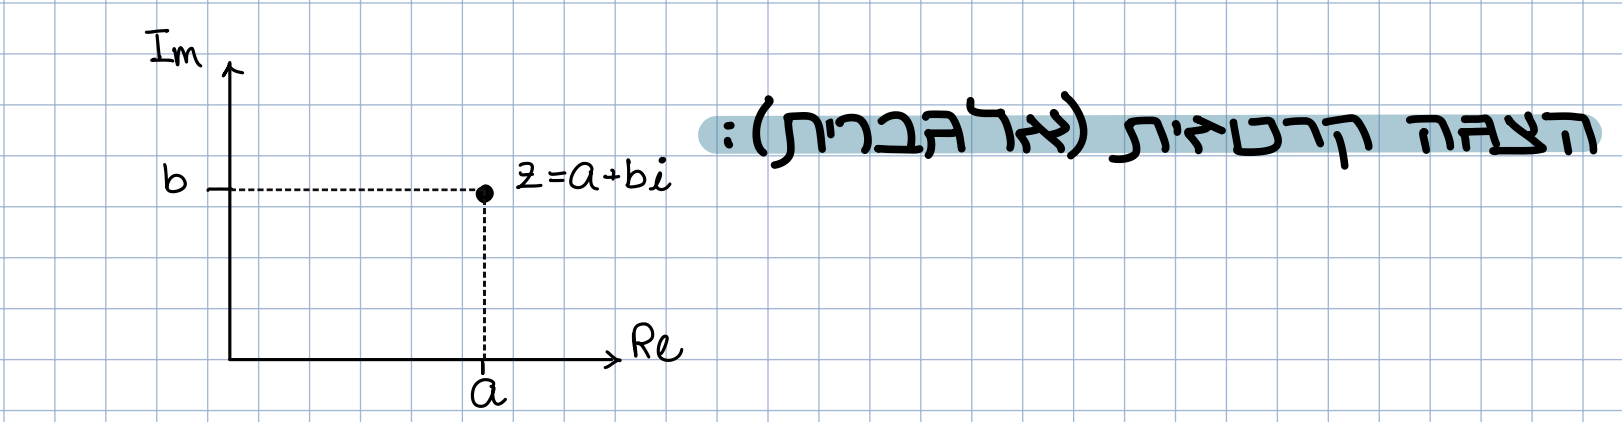 הצגה קרטזית (אלגברית):
Im
b
z=a+bi
Re
a